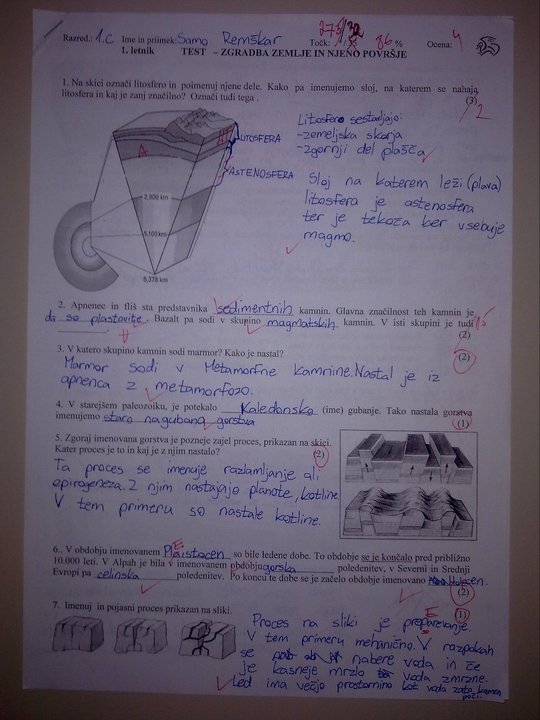 Razred.: 1.C Ime in priimek: Samo Remškar Točk: 27,5/32 86 % Ocena: 4
1. letnik TEST – ZGRADBA ZEMLJE IN NJENO POVRŠJE
1. Na skici označi litosfero in poimenuj njene dele. Kako pa imenujemo sloj, na katerem se nahaja
litosfera in kaj je zanj značilno? Označi tudi tega .
(3)
2
Litosfero sestavljajo:
-zemeljska skorja
-zgornji del plašča
LITOSFERA
A
ASTENOSFERA
Sloj na katerem leži (plava)
litosfera je astenosfera
ter je tekoča ker vsebuje
magmo.
2,900 km
5,100 km
6,378 km
2. Apnenec in fliš sta predstavnika sedimentnih kamnin. Glavna značilnost teh kamnin je
da so plastovite. Bazalt pa sodi v skupino magmatskih kamnin. V isti skupini je tudi
1,5
(2)
3. V katero skupino kamnin sodi marmor? Kako je nastal?
(2)
Marmor sodi v Metamorfne kamnine. Nastal je iz
apnenca z metamorfozo.
4. V starejšem paleozoiku, je potekalo Kaledonsko (ime) gubanje. Tako nastala gorstva
imenujemo staro nagubana gorstva
(1)
5. Zgoraj imenovana gorstva je pozneje zajel proces, prikazan na skici.
Kater proces je to in kaj je z njim nastalo? (2)
Ta proces se imenuje razlamljanje ali
epirogeneza. Z njim nastajajo planote, kotline.
V tem primeru so nastale kotline.
6.. V obdobju imenovanem Plaistocen so bile ledene dobe. To obdobje se je končalo pred približno
E
10.000 leti. V Alpah je bila v imenovanem obdobju gorska poledenitev, v Severni in Srednji
Evropi pa celinska poledenitev. Po koncu te dobe se je začelo obdobje imenovano Holocen.
(2)
7. Imenuj in pojasni proces prikazan na sliki.
(1)
Proces na sliki je preparevanje.
E
V tem primeru mehanično. V razpokah
se nabere voda in če
je kasneje mrzlo voda zmrzne.
Led ima večjo prostornino kot voda zato kamen
poči.